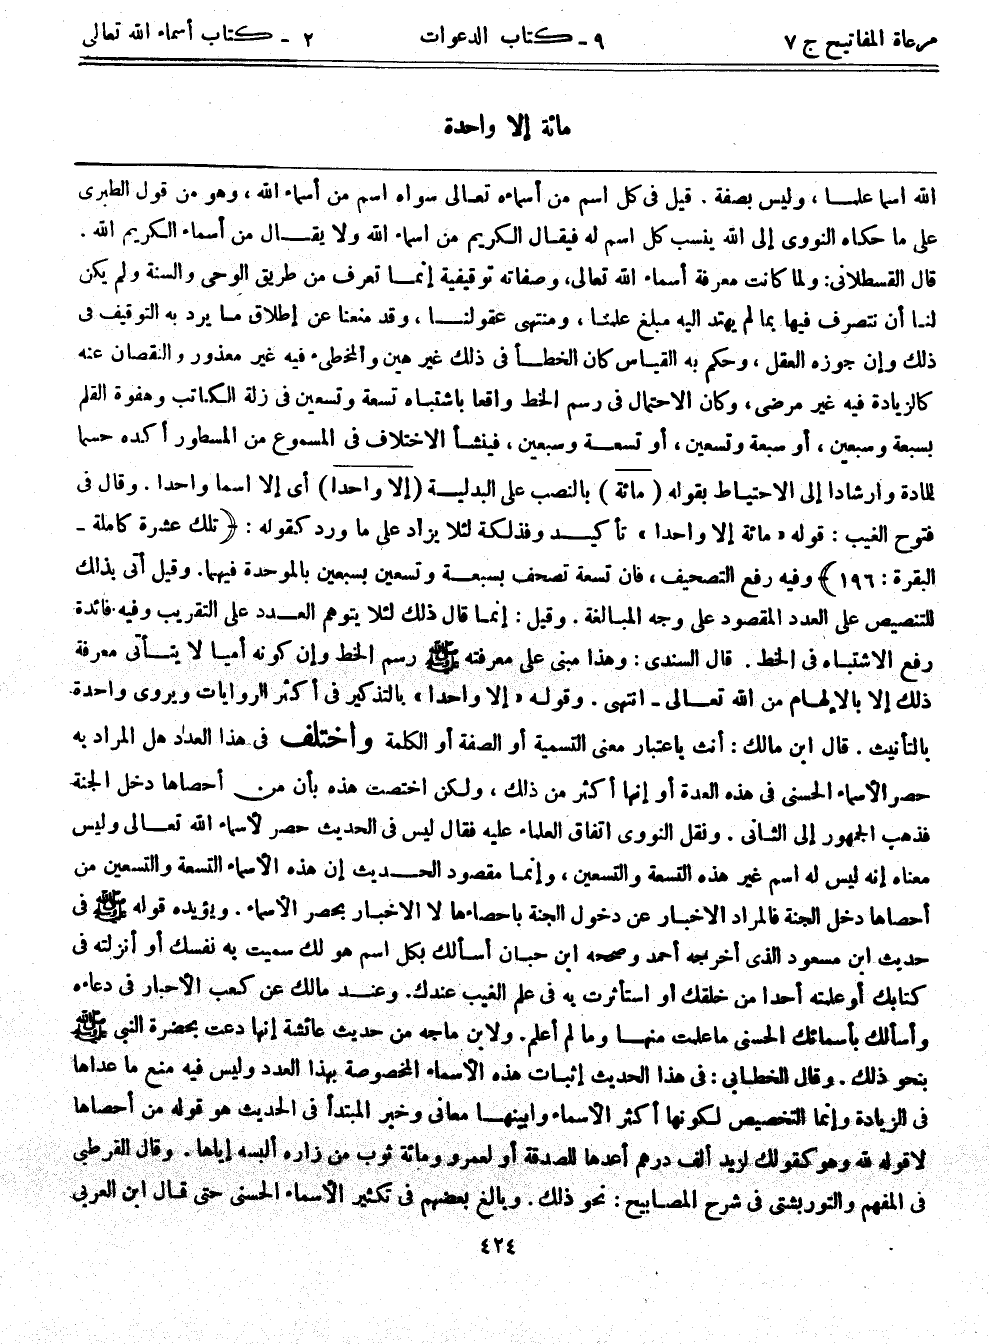 مرعاة المفاتيح ج ٧ ٩ ـ كتاب الدعوات ٢ ـ كتاب أسماء الله تعالى
مائة إلا واحدة
الله اسما علما ، وليس بصفة . قيل فى كل اسم من أسماءه تعالى سواه اسم من أسماء الله ، وهو من قول الطبرى
على ما حكاه النووى إلى الله ينسب كل اسم له فيقال الكريم من اسماء الله ولا يقال من أسماء الكريم الله .
قال القسطلانى: ولما كانت معرفة أسماء الله تعالى، وصفاته توقيفية إنما تعرف من طريق الوحى والسنة ولم يكن
لنا أن نتصرف فيها بما لم يهتد اليه مبلغ علمنا ، ومنتهى عقولنا ، وقد منعنا عن إطلاق ما يرد به التوقيف فى
ذلك وإن جوزه العقل ، وحكم به القياس كان الخطأ فى ذلك غير هين والمخطىء فيه غير معذور والنقصان عنه
كالزيادة فيه غير مرضى، وكان الاحتمال فى رسم الخط واقعا باشتباه تسعة وتسعين فى زلة الكاتب وهفوة القلم
بسبعة وسبعين ، أو سبعة وتسعين، أو تسعة وسبعين ، فينشأ الاختلاف فى المسموع من المسطور أكده حسما
للمادة وارشادا إلى الاحتياط بقوله ( مائة ) بالنصب على البدلية (إلا واحدا) أى إلا اسما واحدا . وقال فى
فتوح الغيب : قوله « مائة إلا واحدا » تأكيد وفذلكة لئلا يزاد على ما ورد كقوله : ﴿ تلك عشرة كاملة ـ
البقرة : ١٩٦ ﴾ وفيه رفع التصحيف، فان تسعة تصحف بسبعة وتسعين بسبعين بالموحدة فيهما. وقيل أتى بذلك
للتنصيص على العدد المقصود على وجه المبالغة . وقيل : إنما قال ذلك لئلا يتوهم العدد على التقريب وفيه فائدة
رفع الاشتباه فى الخط . قال السندى : وهذا مبنى على معرفته ﷺ رسم الخط وإن كونه أميا لا يتأتى معرفة
ذلك إلا بالإلهام من الله تعالى ـ انتهى . وقوله « إلا واحدا » بالتذكير فى أكثر الروايات ويروى واحدة
بالتأنيث . قال ابن مالك : أنث باعتبار معنى التسمية أو الصفة أو الكلمة واختلف فى هذا العدد هل المراد به
حصر الأسماء الحسنى فى هذه العدة أو إنها أكثر من ذلك ، ولكن اختصت هذه بأن من أحصاها دخل الجنة
فذهب الجمهور إلى الثانى . ونقل النووى اتفاق العلماء عليه فقال ليس فى الحديث حصر لأسماء الله تعالى وليس
معناه إنه ليس له اسم غير هذه التسعة والتسعين ، وإنما مقصود الحديث إن هذه الأسماء التسعة والتسعين من
أحصاها دخل الجنة فالمراد الاخبار عن دخول الجنة باحصاءها لا الاخبار بحصر الأسماء . ويؤيده قوله ﷺ فى
حديث ابن مسعود الذى أخرجه أحمد وصححه ابن حبان أسألك بكل اسم هو لك سميت به نفسك أو أنزلته فى
كتابك أو علمته أحدا من خلقك أو استأثرت به فى علم الغيب عندك. وعند مالك عن كعب الأحبار فى دعاءه
وأسألك بأسمائك الحسنى ما علمت منها وما لم أعلم. ولابن ماجه من حديث عائشة إنها دعت بحضرة النبى ﷺ
بنحو ذلك . وقال الخطابى : فى هذا الحديث إثبات هذه الأسماء المخصوصة بهذا العدد وليس فيه منع ما عداها
فى الزيادة وإنما التخصيص لكونها أكثر الأسماء وابينها معانى وخبر المبتدأ فى الحديث هو قوله من أحصاها
لا قوله لله وهو كقولك لزيد ألف درهم أعدها للصدقة أو لعمرو ومائة ثوب من زاره ألبسه إياها . وقال القرطبى
فى المفهم والتوربشتى فى شرح المصابيح : نحو ذلك . وبالغ بعضهم فى تكثير الأسماء الحسنى حتى قال ابن العربى
٤٢٤